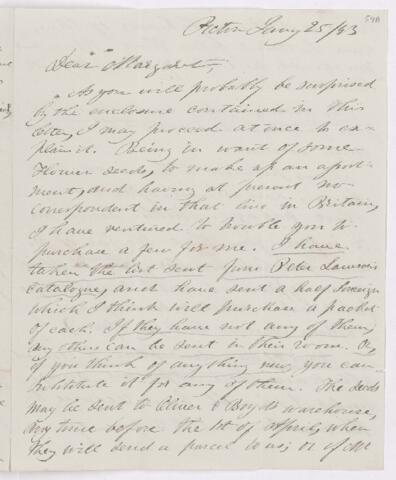 598
Pictou Jany 25/53
Dear Margaret,
As you will probably be surprised
by the enclosure contained in this
letter, I may proceed at once to ex-
plain it. Being in want of some
Flower seeds, to make up an assort-
ment, and having at present no
correspondent in that line in Britain,
I have ventured to trouble you to
purchase a few for me. I have
taken the list sent from Peter Lawson's
Catalogue, and have sent a half Sovereign
which I think will purchase a packet
of each. If they have not any of them,
any others can be sent in their room. Or,
if you think of anything new, you can
substitute it for any of them. The seeds
may be sent to Oliver & Boyd's warehouse,
any time before the 1st of April, when
they will send a parcel to us; or if Mr